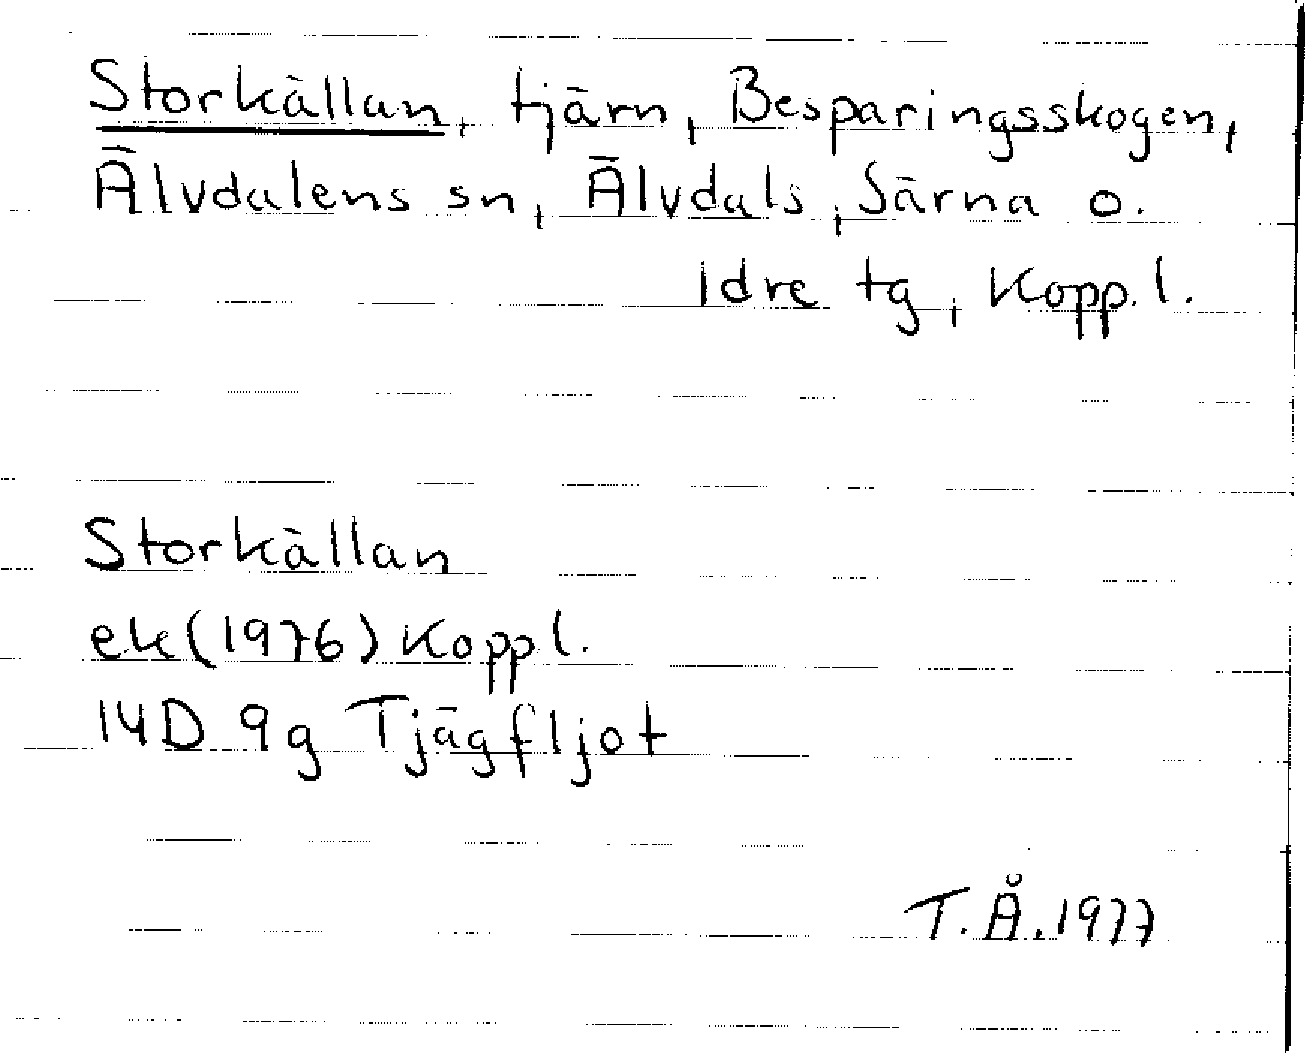 Storkällan, tjärn, Besparingsskogen,
Älvdalens sn, Älvdals, Särna o.
Idre tg, Kopp. l.
Storkällan
ek(1976) Kopp l.
14D 9g Tjägfljot
T.Å.1977